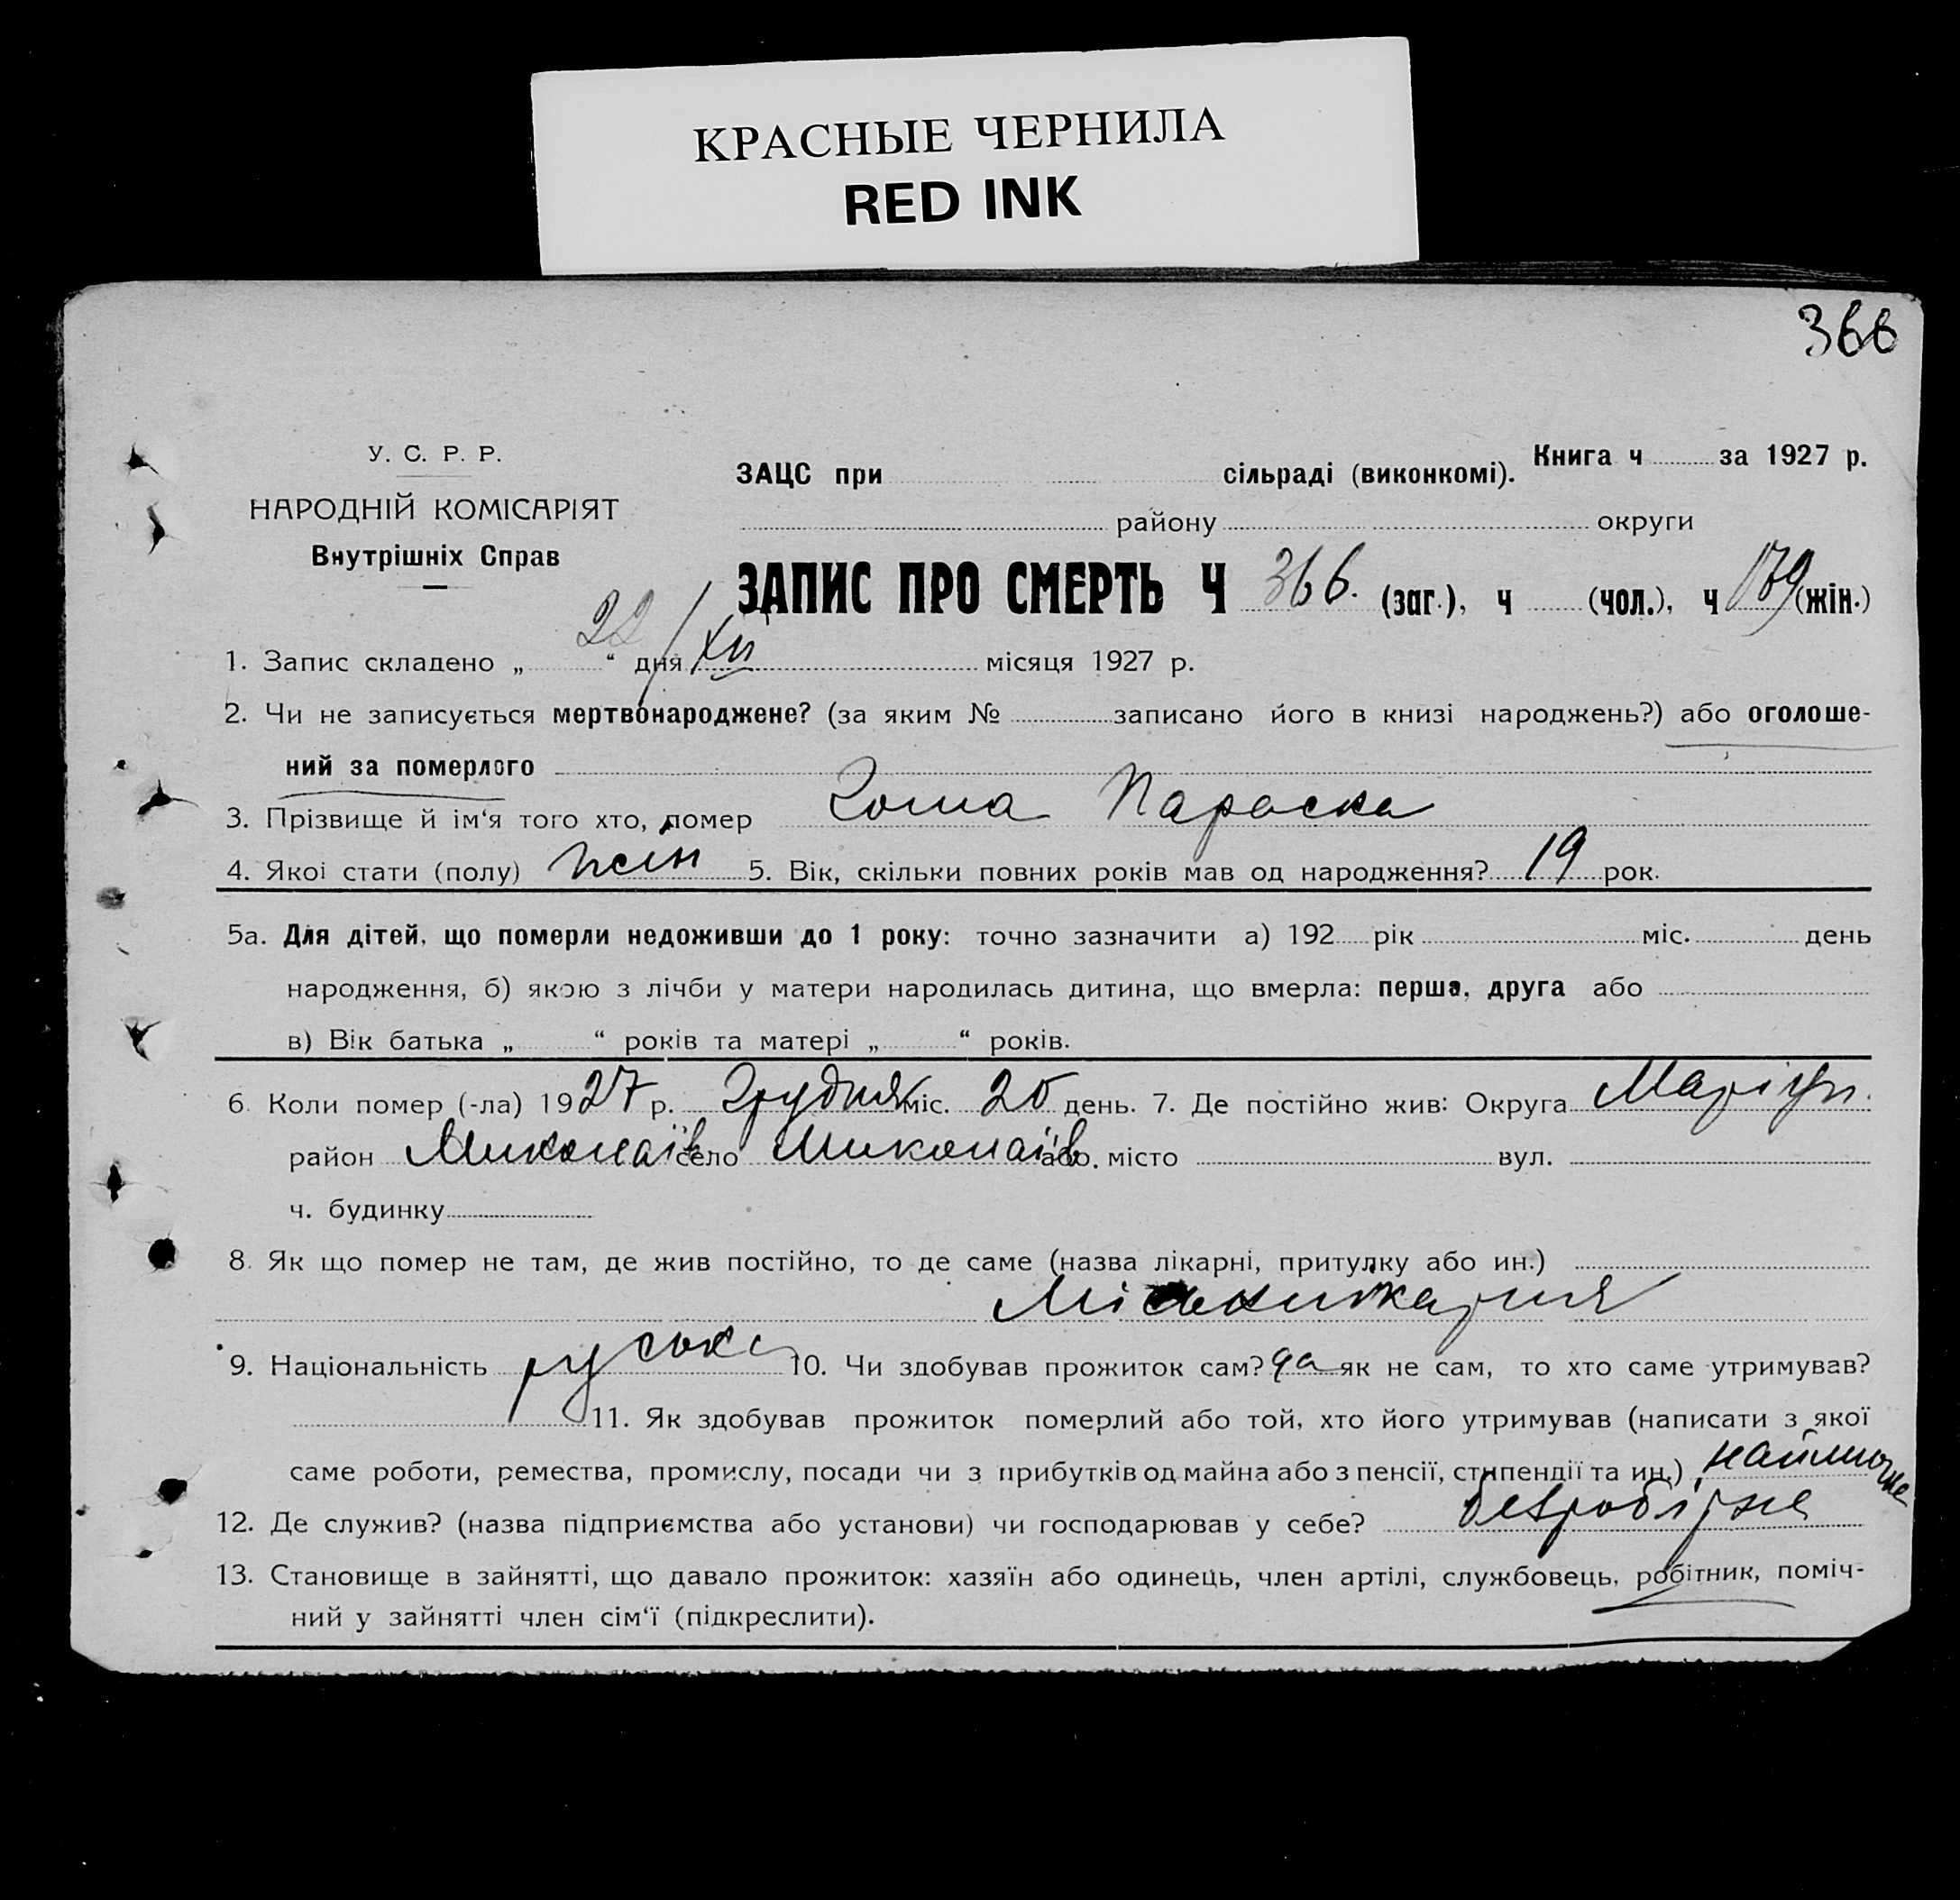 КРАСНЫЕ ЧЕРНИЛА
RED INK
366
У. С. Р. Р.
НАРОДНІЙ КОМІСАРІЯТ
Внутрішніх Справ
ЗАЦС при сільраді (виконкомі). Книга ч за 1927 р.
району округи
ЗАПИС ПРО СМЕРТЬ Ч 366. (заг.), ч (чол.), ч 179 (жін.)
1. Запис складено „ 22 “ дня XII місяця 1927 р.
2. Чи не записується мертвонароджене? (за яким № записано його в книзі народжень?) або оголоше-
ний за померлого
3. Прізвище й ім‘я того хто, помер Параска
4. Якої стати (полу) жін 5. Вік, скільки повних років мав од народження? 19 рок.
5а. Для дітей, що померли недоживши до 1 року: точно зазначити а) 192 рік міс. день
народження, б) якою з лічби у матери народилась дитина, що вмерла: перша, друга або
в) Вік батька „ “ років та матері „ “ років.
6. Коли помер (-ла) 1927 р. Грудня міс. 20 день. 7. Де постійно жив: Округа Маріуп.
район Миколаїв село Миколаїв або. місто вул.
ч. будинку
8. Як що помер не там, де жив постійно, то де саме (назва лікарні, притулку або ин.)
9. Національність руська 10. Чи здобував прожиток сам? да як не сам, то хто саме утримував?
11. Як здобував прожиток померлий або той, хто його утримував (написати з якої
саме роботи, ремества, промислу, посади чи з прибутків од майна або з пенсії, стипендії та ин.) наймичка
12. Де служив? (назва підприємства або установи) чи господарював у себе? безробітна
13. Становище в зайнятті, що давало прожиток: хазяїн або одинець, член артілі, службовець, робітник, поміч-
ний у зайнятті член сім‘ї (підкреслити).